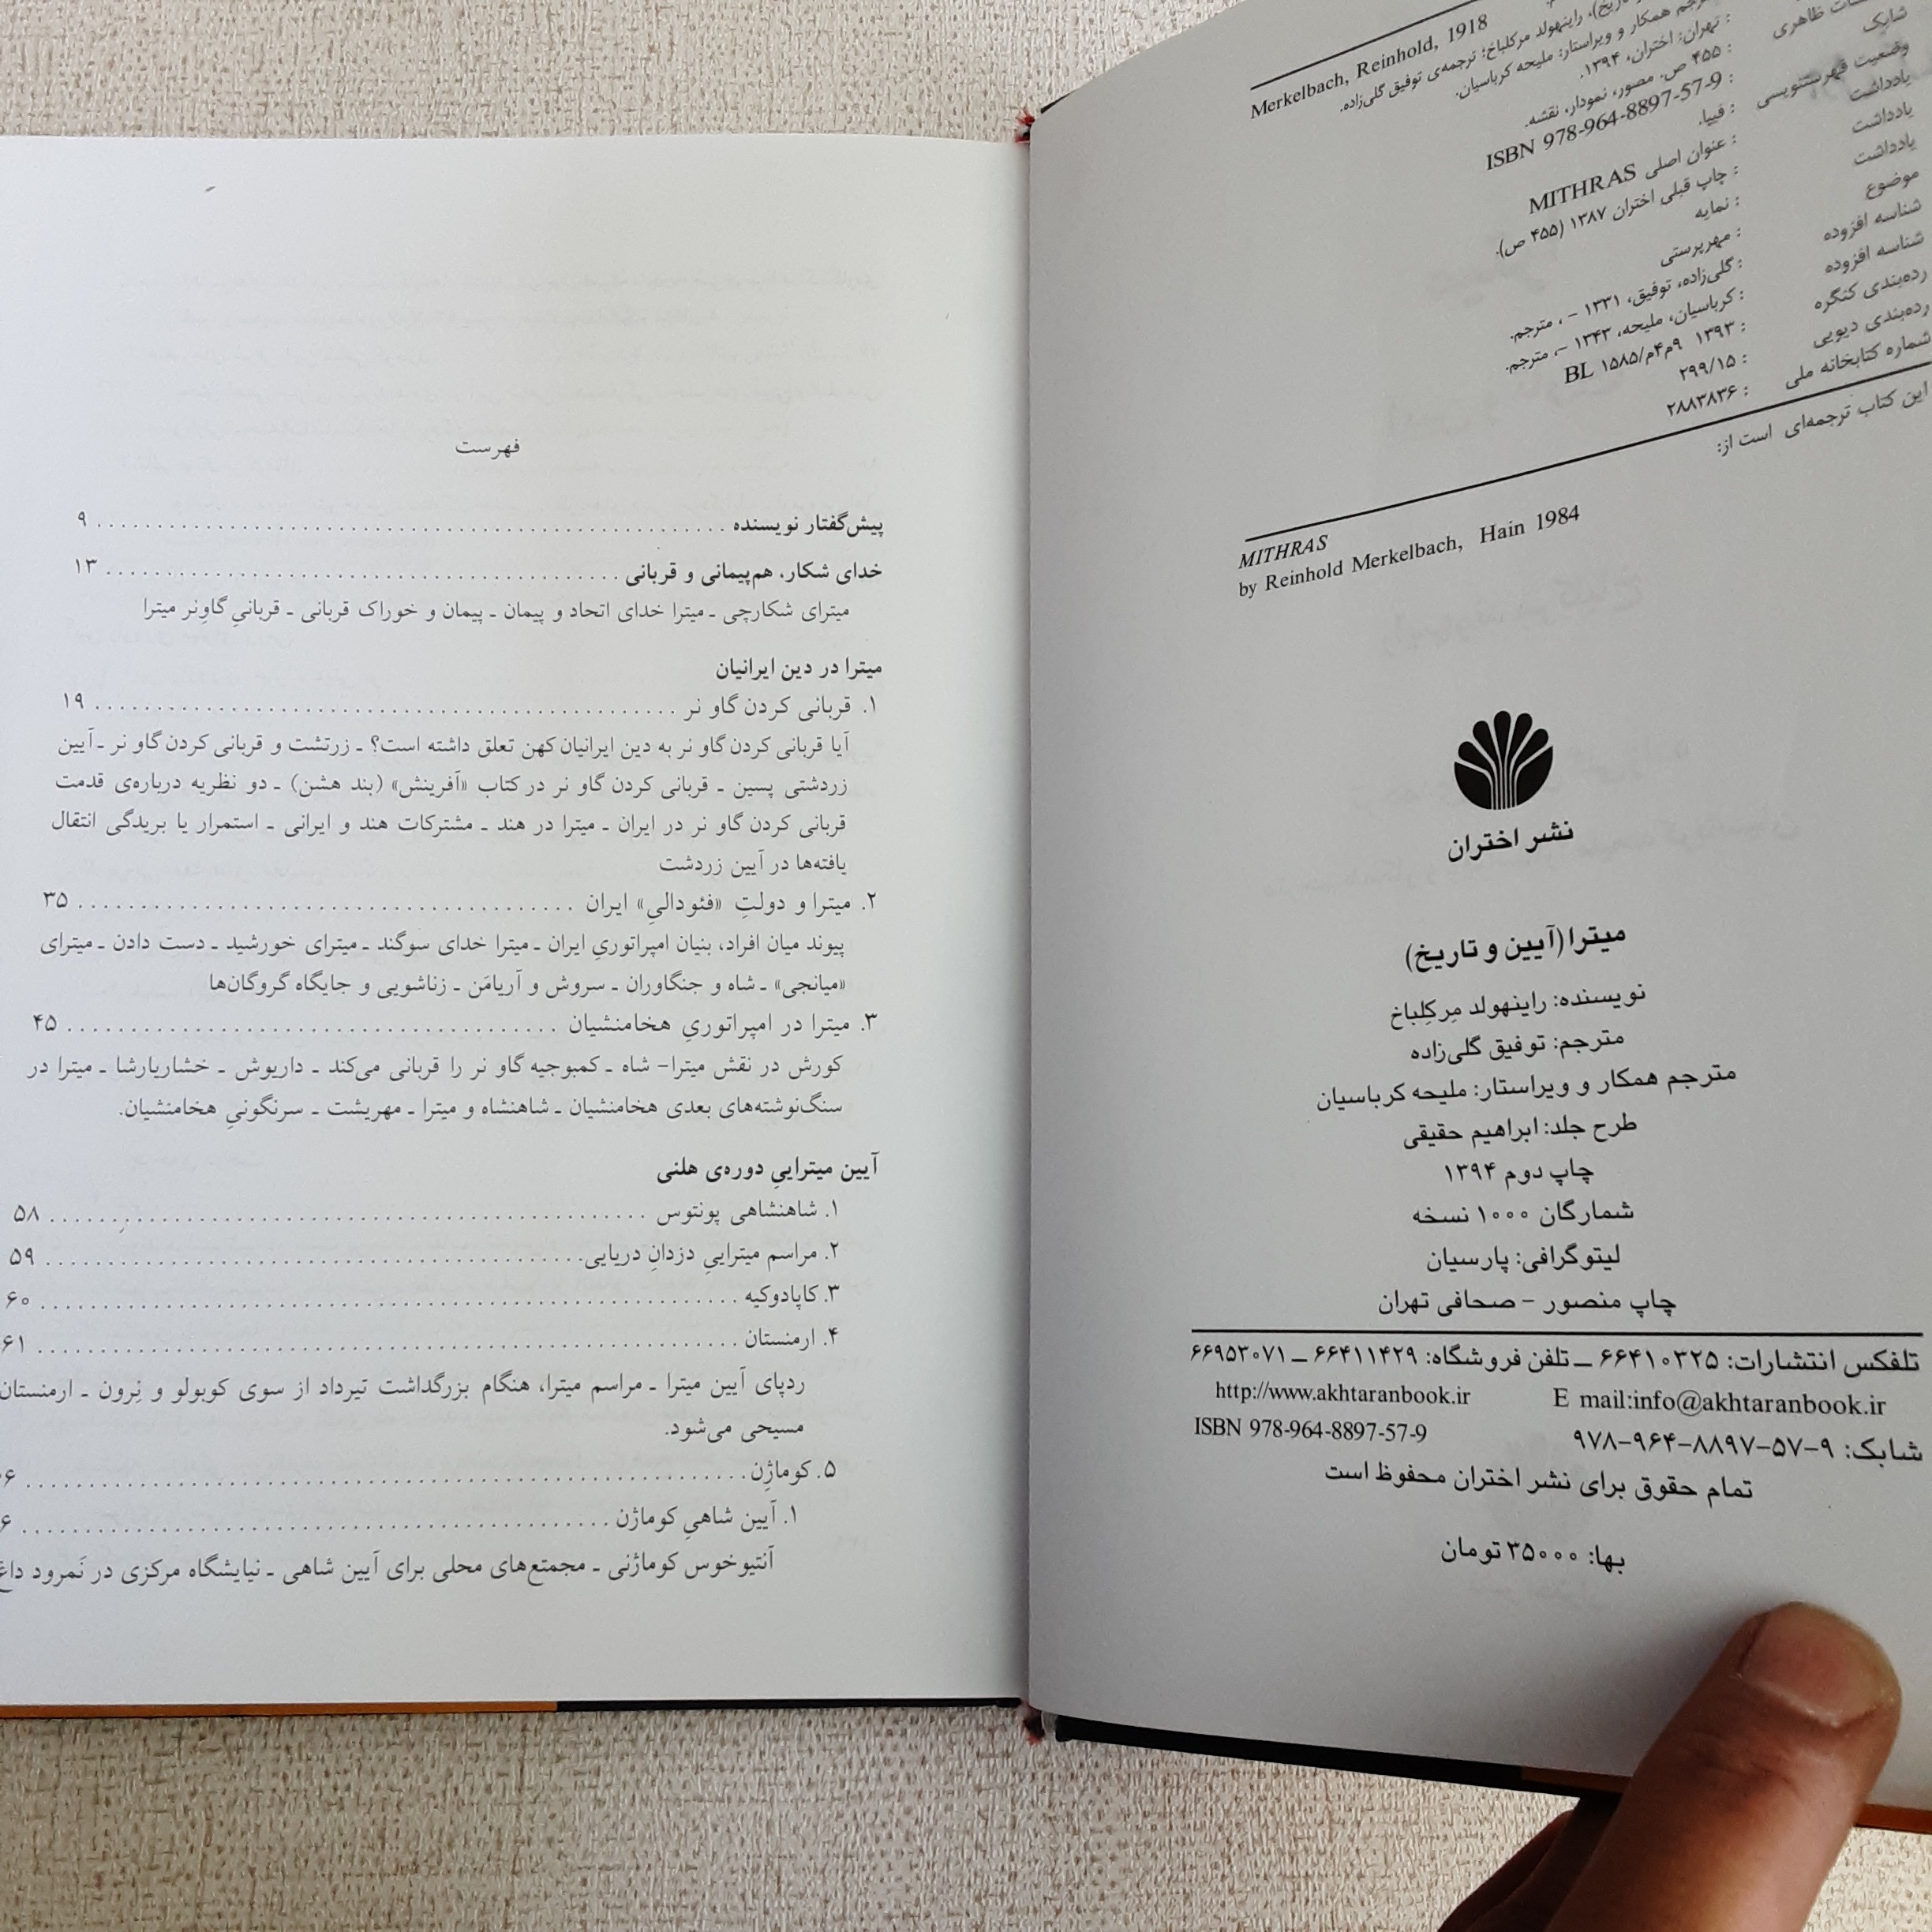 Merkelbach, Reinhold, 1918
راینهولد مرکلباخ؛ ترجمه‌ی توفیق گلی‌زاده.
مترجم همکار و ویراستار: ملیحه کرباسیان.
: تهران: اختران، ۱۳۹۴.
ظاهری : ۴۵۵ ص. مصور، نمودار، نقشه.
شابک : ISBN 978-964-8897-57-9
وضعیت فهرستنویسی : فیپا.
یادداشت : عنوان اصلی MITHRAS
یادداشت : چاپ قبلی اختران ۱۳۸۷ (۴۵۵ ص).
یادداشت : نمایه
موضوع : مهرپرستی
شناسه افزوده : گلی‌زاده، توفیق، ۱۳۳۱ – ، مترجم.
شناسه افزوده : کرباسیان، ملیحه، ۱۳۴۳ –، مترجم.
رده‌بندی کنگره : ۱۳۹۳ ۹م۴م/BL ۱۵۸۵
رده‌بندی دیویی : ۲۹۹/۱۵
شماره کتابخانه ملی : ۲۸۸۳۸۳۶
این کتاب ترجمه‌ای است از:
MITHRAS
by Reinhold Merkelbach, Hain 1984
نشر اختران
میترا (آیین و تاریخ)
نویسنده: راینهولد مِرکِلباخ
مترجم: توفیق گلی‌زاده
مترجم همکار و ویراستار: ملیحه کرباسیان
طرح جلد: ابراهیم حقیقی
چاپ دوم ۱۳۹۴
شمارگان ۱۰۰۰ نسخه
لیتوگرافی: پارسیان
چاپ منصور – صحافی تهران
تلفکس انتشارات: ۶۶۴۱۰۳۲۵ ــ تلفن فروشگاه: ۶۶۴۱۱۴۲۹ ــ ۶۶۹۵۳۰۷۱
http://www.akhtaranbook.ir E mail:info@akhtaranbook.ir
شابک: ۹–۵۷–۸۸۹۷–۹۶۴–۹۷۸ ISBN 978-964-8897-57-9
تمام حقوق برای نشر اختران محفوظ است
بها: ۳۵۰۰۰ تومان
فهرست
پیش‌گفتار نویسنده ..... ۹
خدای شکار، هم‌پیمانی و قربانی ..... ۱۳
میترای شکارچی ـ میترا خدای اتحاد و پیمان ـ پیمان و خوراک قربانی ـ قربانیِ گاوِنر میترا
میترا در دین ایرانیان
۱. قربانی کردن گاو نر ..... ۱۹
آیا قربانی کردن گاو نر به دین ایرانیان کهن تعلق داشته است؟ ـ زرتشت و قربانی کردن گاو نر ـ آیین
زردشتی پسین ـ قربانی کردن گاو نر در کتاب «آفرینش» (بند هشن) ـ دو نظریه درباره‌ی قدمت
قربانی کردن گاو نر در ایران ـ میترا در هند ـ مشترکات هند و ایرانی ـ استمرار یا بریدگی انتقال
یافته‌ها در آیین زردشت
۲. میترا و دولتِ «فئودالیِ» ایران ..... ۳۵
پیوند میان افراد، بنیان امپراتوریِ ایران ـ میترا خدای سوگند ـ میترای خورشید ـ دست دادن ـ میترای
«میانجی» ـ شاه و جنگاوران ـ سروش و آریامَن ـ زناشویی و جایگاه گروگان‌ها
۳. میترا در امپراتوریِ هخامنشیان ..... ۴۵
کورش در نقش میترا– شاه ـ کمبوجیه گاو نر را قربانی می‌کند ـ داریوش ـ خشاریارشا ـ میترا در
سنگ‌نوشته‌های بعدی هخامنشیان ـ شاهنشاه و میترا ـ مهریشت ـ سرنگونیِ هخامنشیان.
آیین میتراییِ دوره‌ی هلنی
۱. شاهنشاهی پونتوس ..... ۵۸
۲. مراسم میتراییِ دزدانِ دریایی ..... ۵۹
۳. کاپادوکیه ..... ۶۰
۴. ارمنستان ..... ۶۱
ردپای آیین میترا ـ مراسم میترا، هنگام بزرگداشت تیرداد از سوی کوبولو و نِرون ـ ارمنستان
مسیحی می‌شود.
۵. کوماژِن .....
۱. آیین شاهیِ کوماژن .....
آنتیوخوس کوماژنی ـ مجتمع‌های محلی برای آیین شاهی ـ نیایشگاه مرکزی در نَمرود داغ